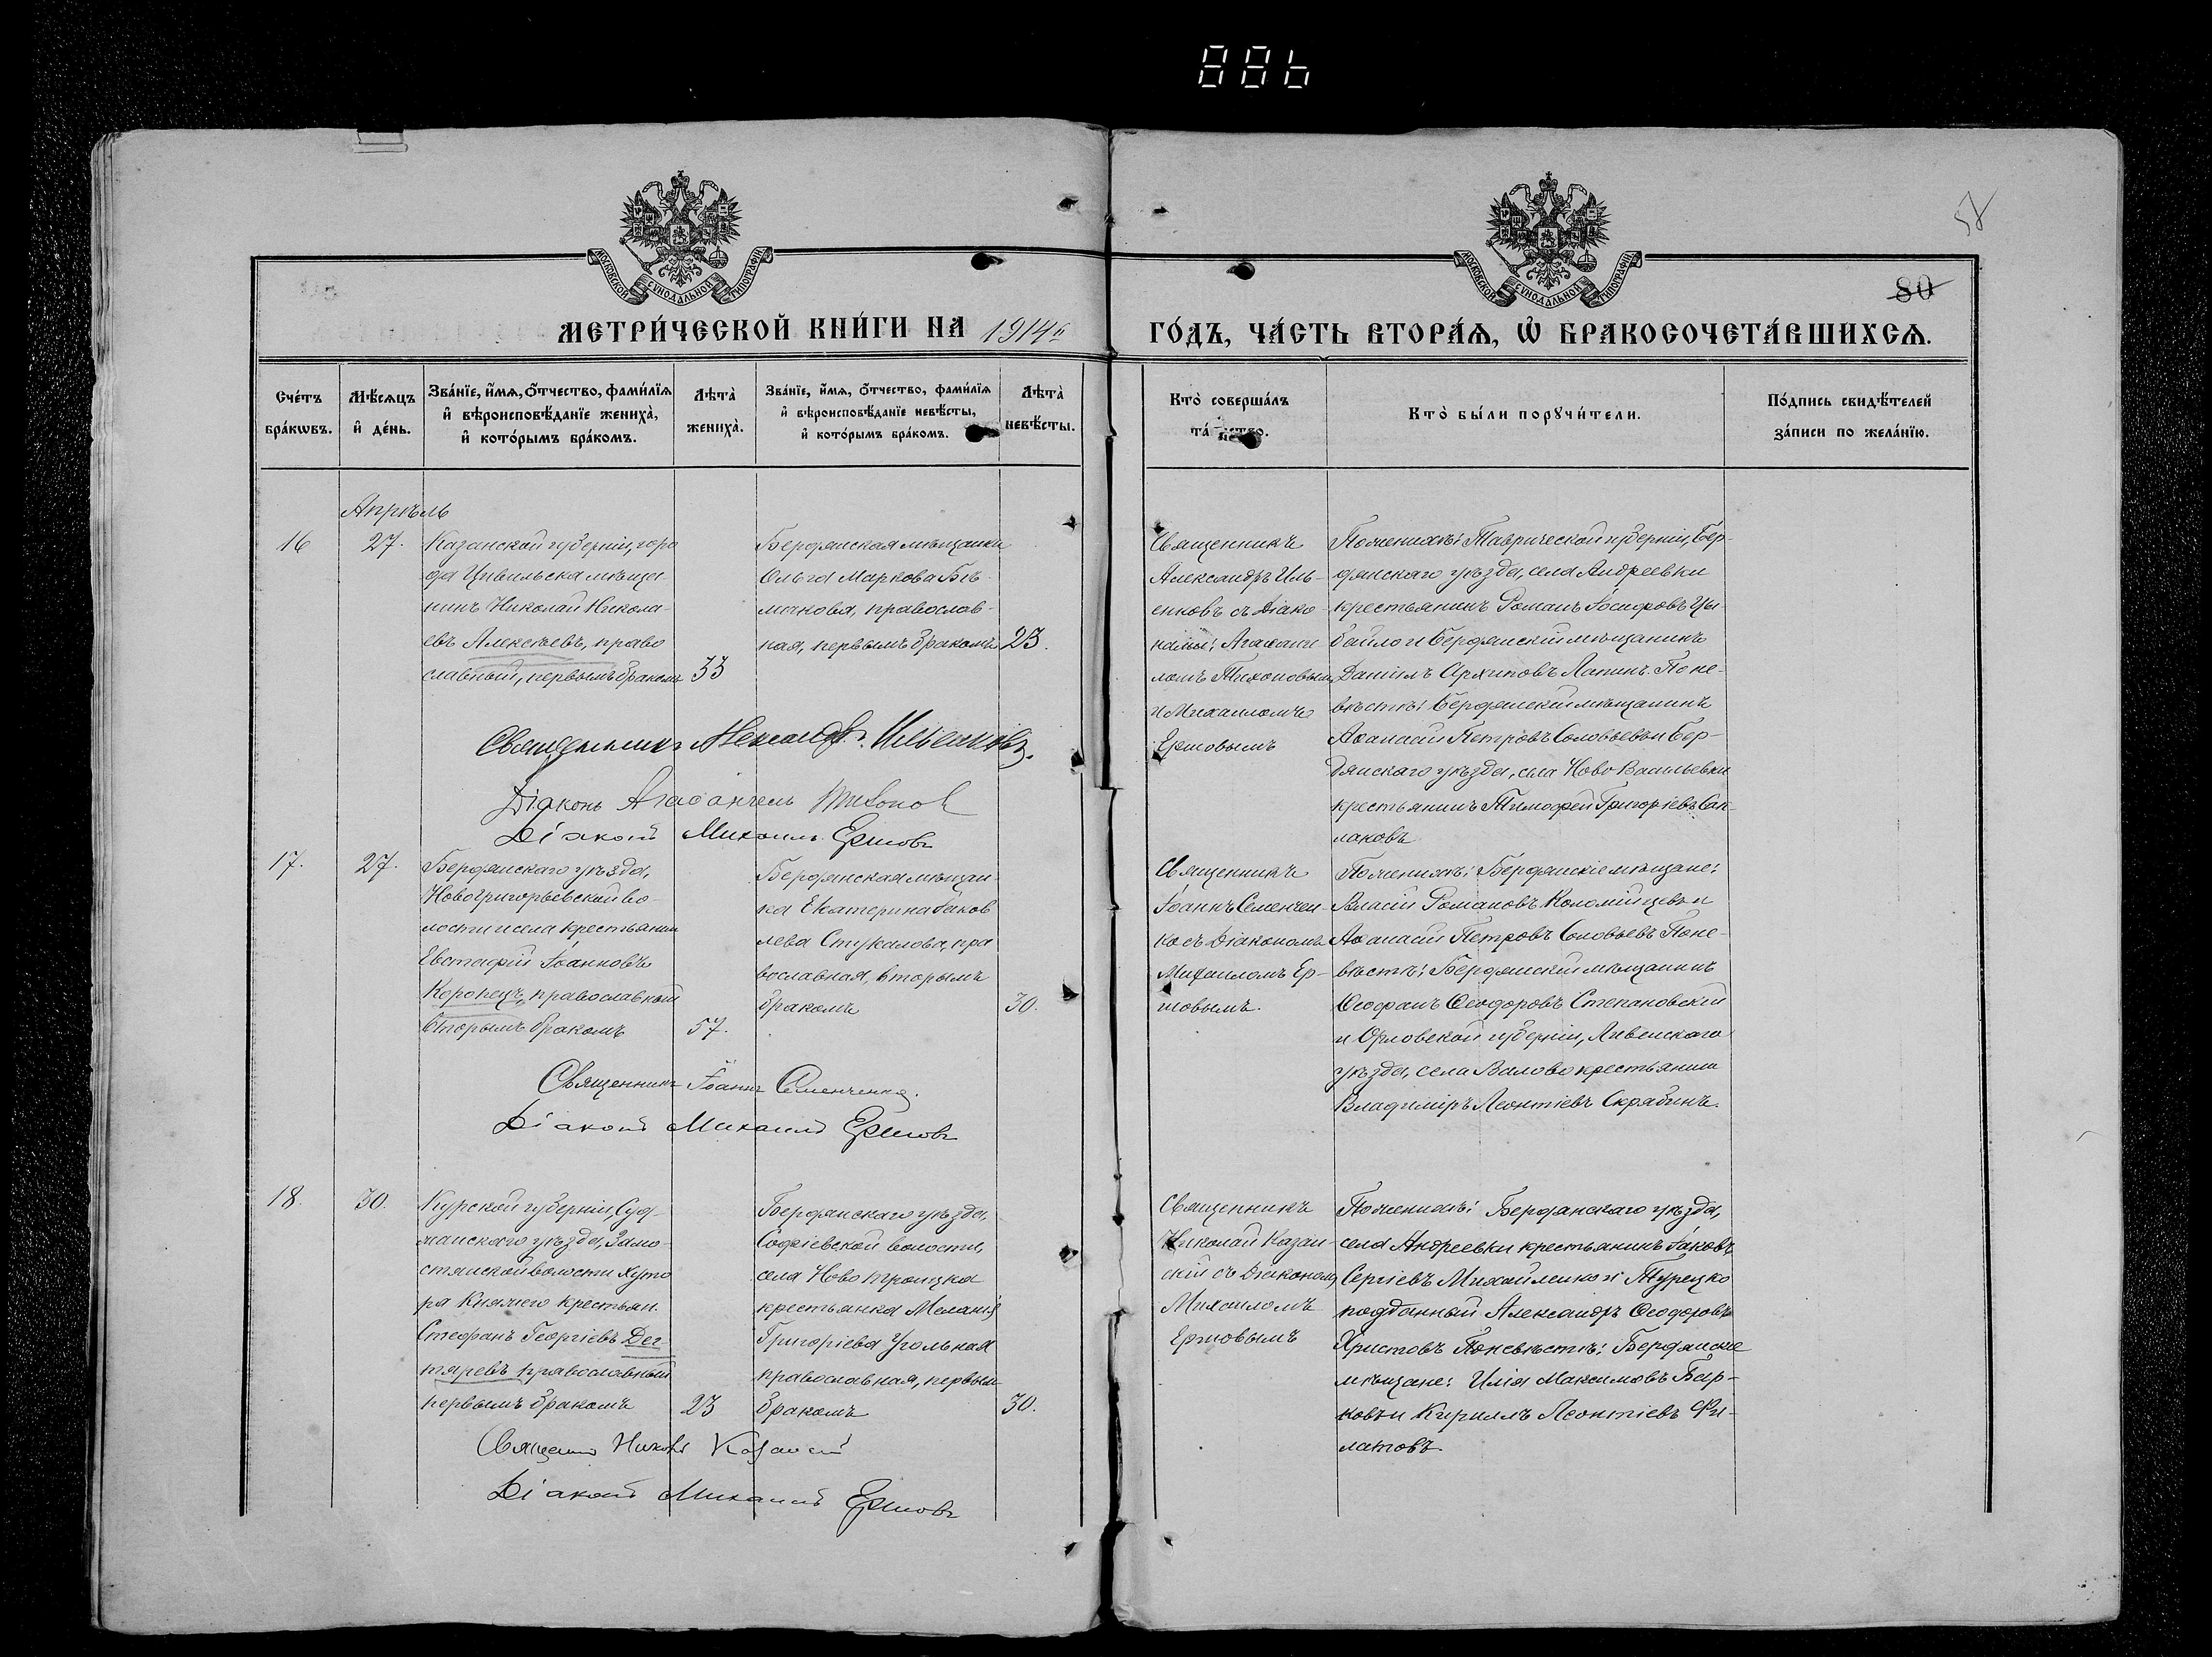 886
57
МОСКОВСКОЙ СѴНОДАЛЬНОЙ ТИПОГРАФІИ
МОСКОВСКОЙ СѴНОДАЛЬНОЙ ТИПОГРАФІИ
80
МЕТРИ́ЧЕСКОЙ КНИ́ГИ НА 1914й
ГО́ДЪ, ЧА́СТЬ ВТОРА́Ѧ, Ѡ҆ БРАКОСОЧЕТА́ВШИХСѦ.
Сче́тъ
бра́кѡвъ.
Мѣ́сѧцъ
и҆ де́нь.
Зва́нїе, и҆́мѧ, ѻ҆́тчество, фами́лїѧ
и҆ вѣроисповѣ́данїе жениха̀,
и҆ кото́рымъ бра́комъ.
Лѣта̀
жениха̀.
Зва́нїе, и҆́мѧ, ѻ҆́тчество, фами́лїѧ
и҆ вѣроисповѣ́данїе невѣ́сты,
и҆ кото́рымъ бра́комъ.
Лѣта̀
невѣ́сты.
Кто̀ соверша́лъ
та́ ство.
Кто̀ бы́ли порꙋчи́тели.
По́дпись свидѣ́телей
за́писи по жела́нїю.
Апрѣль
16
27.
Казанской губерніи, горо
да Цивильска мѣща-
нинъ Николай Никола-
евъ Алексѣевъ, право
славный, первымъ бракомъ
33
Бердянская мѣщанка
Ольга Маркова Бѣ-
лючкова, православ-
ная, первымъ бракомъ
23.
Священникъ
Александръ Иль-
енковъ съ Діако-
нами: Агафанге
ломъ Тихоновымъ
и Михаиломъ
Ершовымъ
По женихѣ: Таврической губерніи, Бер-
дянскаго уѣзда, села Андреевки
крестьянинъ Романъ Іосифовъ Цы-
байло и Бердянскій мѣщанинъ
Даніилъ Архиповъ Лапинъ. По не-
вѣстѣ: Бердянскій мѣщанинъ
Аѳанасій Петровъ Соловьевъ и Бер-
дянскаго уѣзда, села Ново Васильевки
крестьянинъ Тимофей Григорьевъ Сап-
лаковъ
Священникъ Александръ Ильенковъ.
Діаконъ Агафангелъ Тихонов
Діаконъ Михаилъ Ершовъ
17.
27.
Бердянскаго уѣзда,
Новогригорьевской во-
лости и села крестьянин
Евстафій Іоанновъ
Коропецъ, православный
вторымъ бракомъ
57.
Бердянская мѣщан-
ка Екатерина Іаков
лева Стукалова, пра
вославная, вторымъ
бракомъ
30.
Священникъ
Іоаннъ Семенчен-
ко съ Діакономъ
Михаиломъ Ер-
шовымъ.
По женихѣ: Бердянскіе мѣщане:
Власій Романовъ Коломійцевъ и
Аѳанасій Петровъ Соловьевъ По не-
вѣстѣ: Бердянскій мѣщанинъ
Ѳеофанъ Ѳеодоровъ Степановскій
и Орловской губерніи, Ливенскаго
уѣзда, села Валово крестьянин
Владиміръ Леонтіевъ Скрябинъ.
Священникъ Іоаннъ Семенченко.
Діаконъ Михаилъ Ершовъ
18.
30.
Курской губерніи, Суд-
жанскаго уѣзда, Замо-
стянской волости Хуто
ра Княжего крестьян.
Стефанъ Георгіевъ Дег
тяревъ православный
первымъ бракомъ
23
Бердянскаго уѣзда,
Софіевской волости,
села Ново Троицка
крестьянка Меланія
Григоріева Угольная
православная, первым
бракомъ
30.
Священникъ
Николай Казан-
скій съ Діакономъ
Михаиломъ
Ершовымъ
По женихѣ: Бердянскаго уѣзда,
села Андреевки крестьянинъ Іаковъ
Сергіевъ Михайленко и Турецко
подданный Александръ Ѳеодоровъ
Христовъ По невѣстѣ: Бердянскіе
мѣщане: Илія Максимовъ Бар-
ковъ и Кириллъ Леонтіевъ Фи-
латовъ.
Священникъ Николай Казанскій
Діаконъ Михаилъ Ершовъ